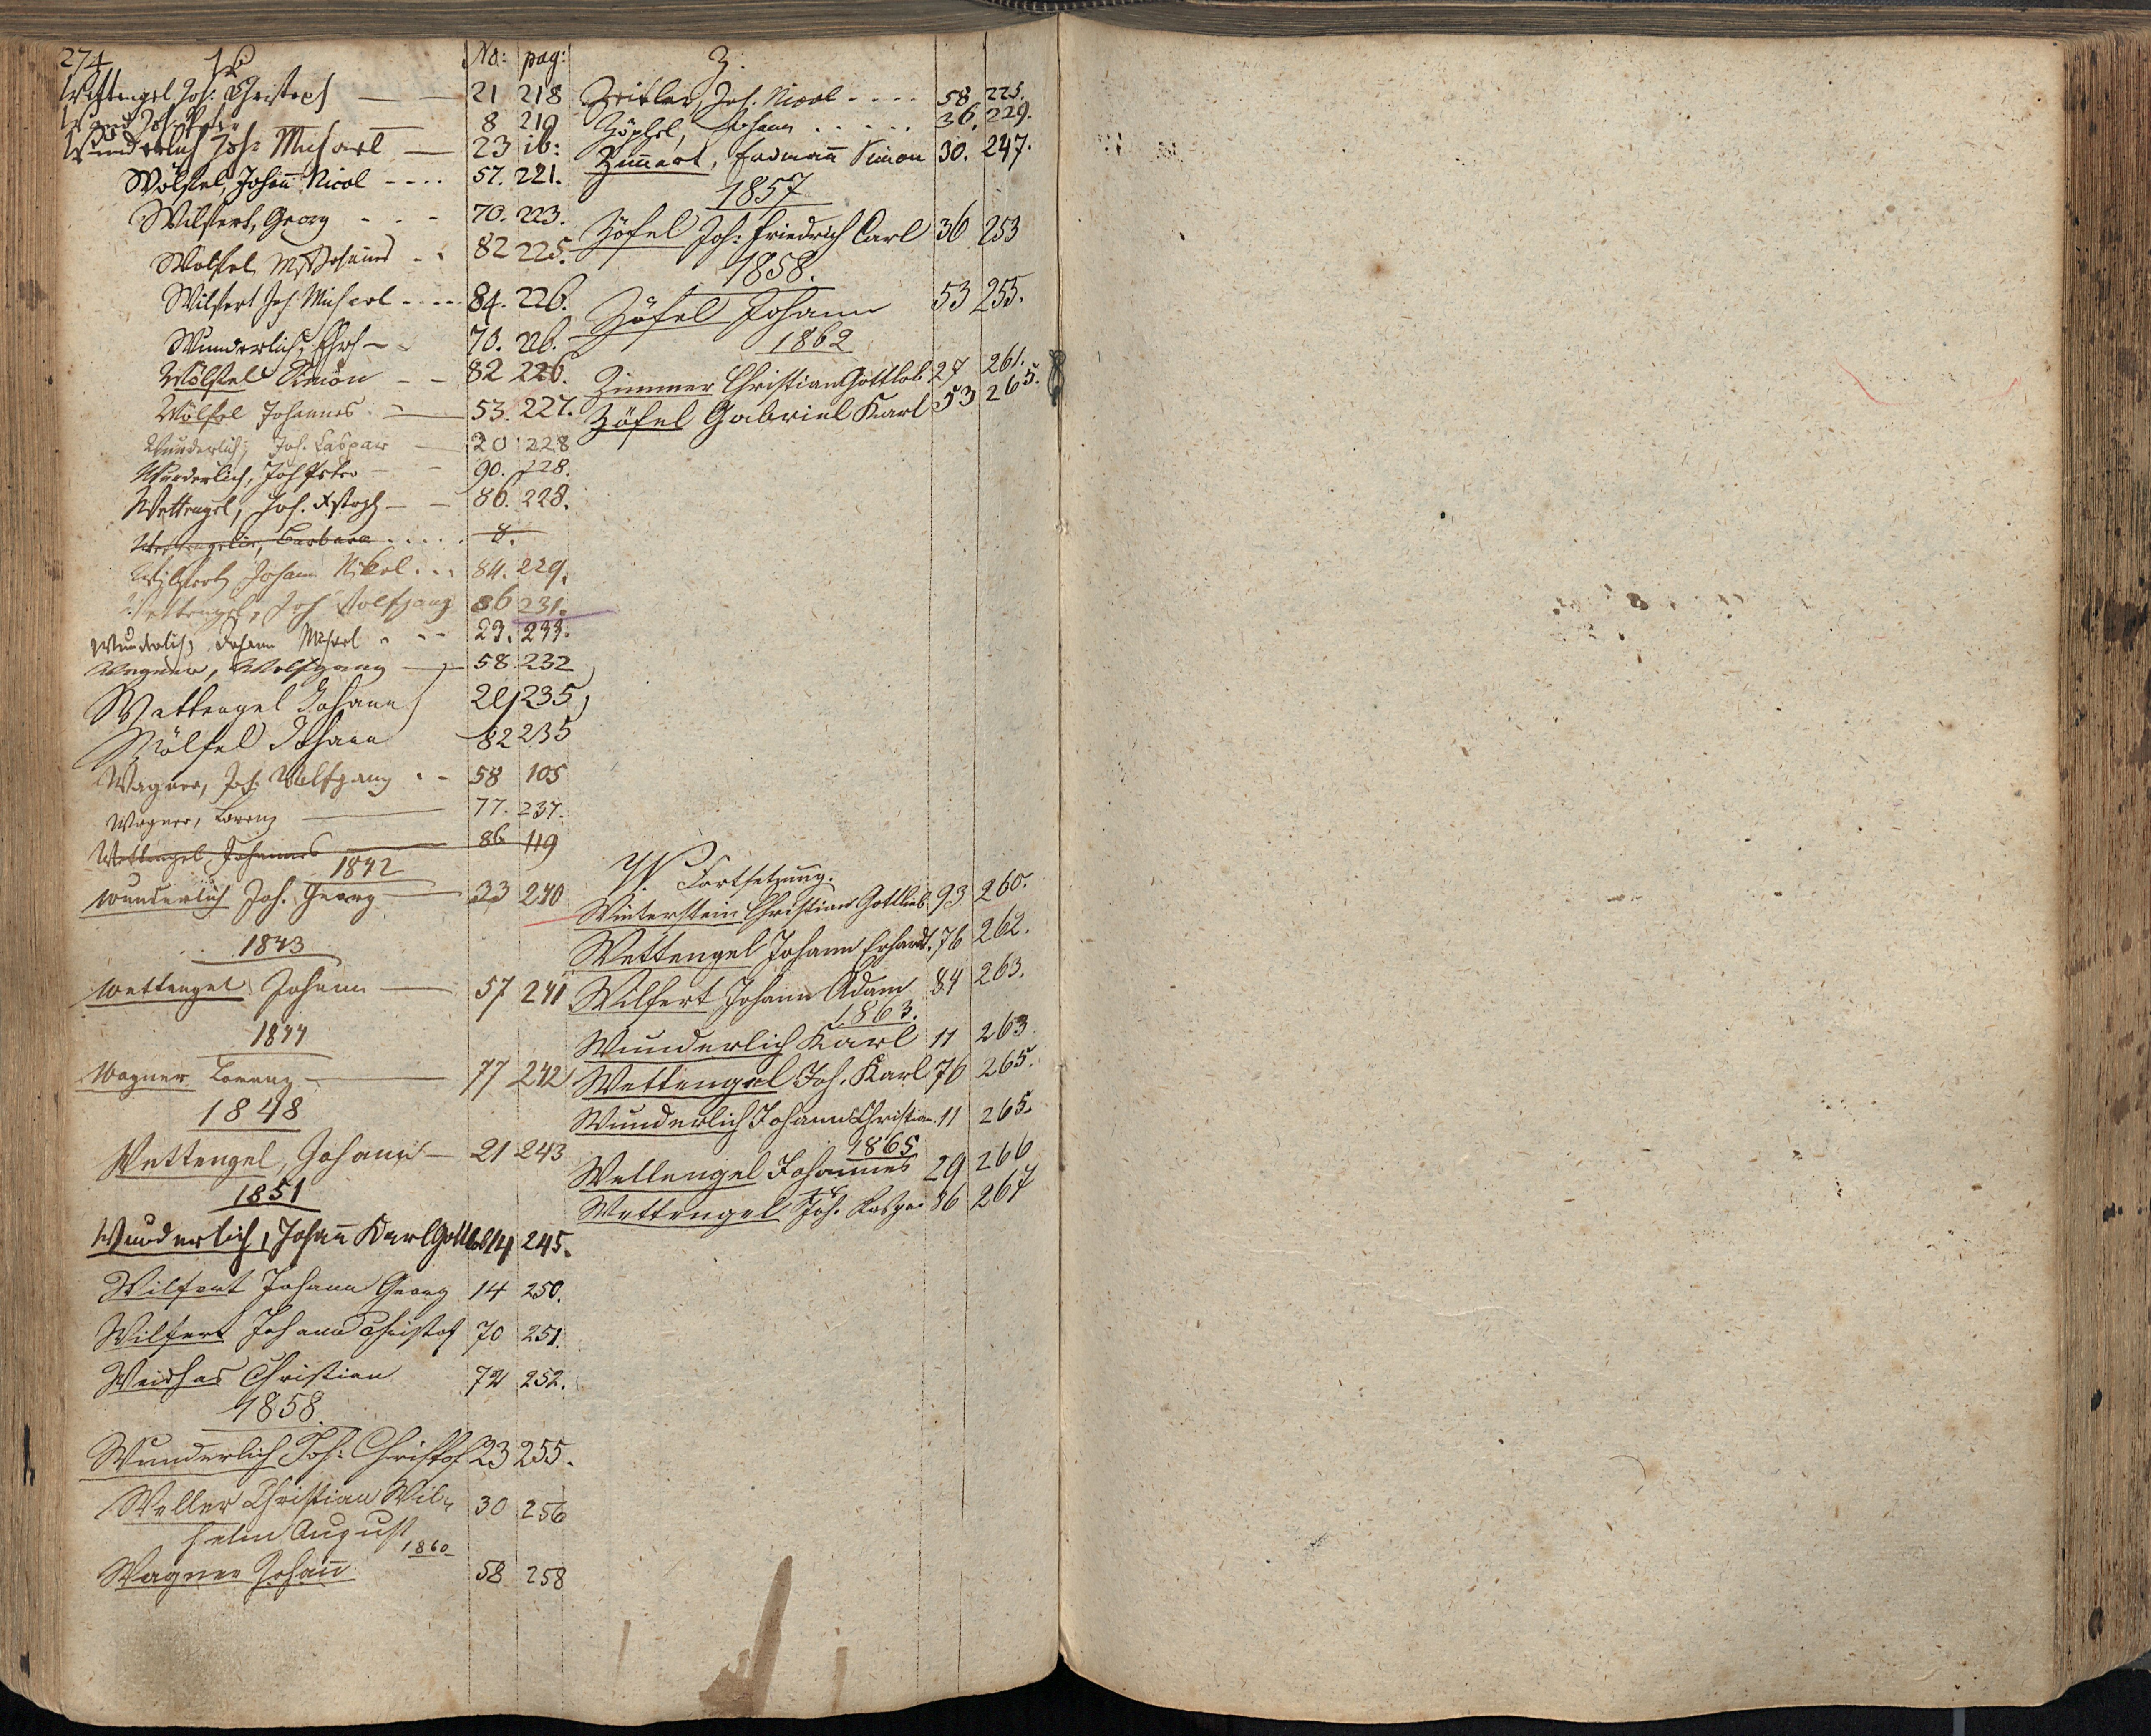 274
W
No: pag:
Wettengel Joh: Christoph — 21 218
8 219
Wunderlich Joh: Michael — 23 ib:
Wölfel, Johañ Nicol - - - - 57. 221.
Wilfert, Georg - - - 70. 223.
Wölfel, Johannes - - 82 225.
Wilfert Joh. Michael - - - - 84. 226.
Wunderlich, - - 70. 226.
Wölfel Simon - - 82 226.
Wölfel Johannes. — 53. 227.
Wunderlich, Joh. Caspar — 20 228
Wunderlich, Joh Peter - - 90. 228.
Wettengel, Joh. Xstoph — 86. 228.
Wettengelin, Barbara . . . . .
Wilfert Johann Nikol. . . 84. 229.
Wettengel, Joh Wolfgang 86 231.
Wunderlich, Johann Michael - - - 23. 233.
Wagner, Wolfgang — 58. 232
Wettengel Johann 21 235
Wölfel Johann 82 235
Wagner, Joh. Wolfgang - - 58 105
Wagner, Lorenz — 77. 237.
Wettengel, Johannes — 86 119
1842
Wunderlich Joh. Georg — 23 240
1843
Wettengel Johann — 57 241
1844
Wagner Lorenz — 77 242
1848
Wettengel, Johann — 21 243
1851
Wunderlich, Johañ Karl Gottlob 14 245.
Wilfert Johann Georg 14 250.
Wilfert Johann Christof 70 251.
Weidhas Christian 72 252.
1858.
Wunderlich Joh: Christof 23 255.
Weller Christian Wil-
helm August 30 256
1860
Wagner Johañ 58 258
Z.
Zeitler, Joh. Nicol - - - - 58 225.
Zöphel, Johann . . . . . 36. 229.
Zim̃ert, Erdmañ Simon 30. 247.
1857
Zöfel Joh: Friedrich Carl 36 253
1858.
Zöfel Johann 53 255.
1862
Zimmer Christian Gottlob 27 261.
Zöfel Gabriel Karl 53 265.
W. Fortsetzung.
Winterstein Christian Gottlieb 93 260.
Wettengel Johann Erhardt. 76 262.
Wilfert Johann Adam 84 263.
1863.
Wunderlich Karl 11 263
Wettengel Joh. Karl 76 265.
Wunderlich Johann Christian. 11 265.
1865
Wettengel Johannes 29 266
Wettengel Joh. Kaspar 86 267